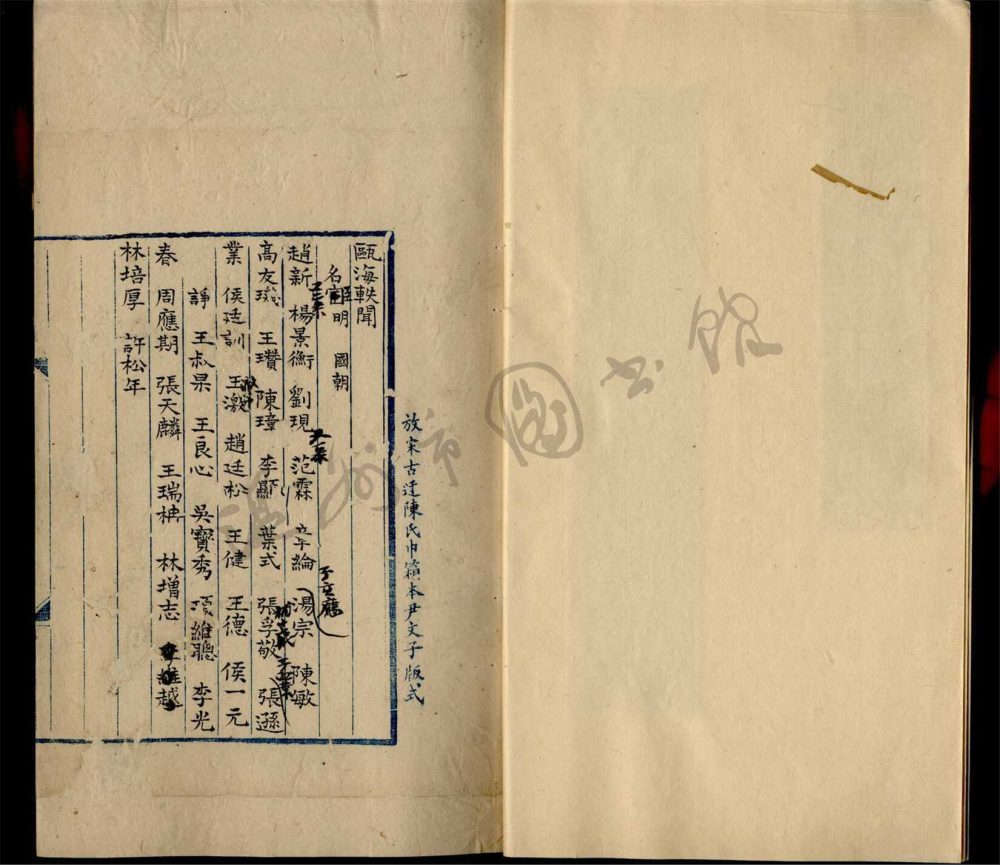 放宋古迂陳氏巾箱本尹文子版式
甌海軼聞
名宦 明 國朝
趙新 楊景衡 劉現 范霖 章綸 湯宗 陳敏
高友璣 王瓚 陳璋 李顯 葉式 張孚敬 張遜
業 侯廷訓 王激 趙廷松 王健 王德 侯一元
諍 王叔杲 王良心 吳寶秀 項維聰 李光
春 周應期 張天麟 王瑞柟 林增志 李維越
林培厚 許松年
溫州市圖書館